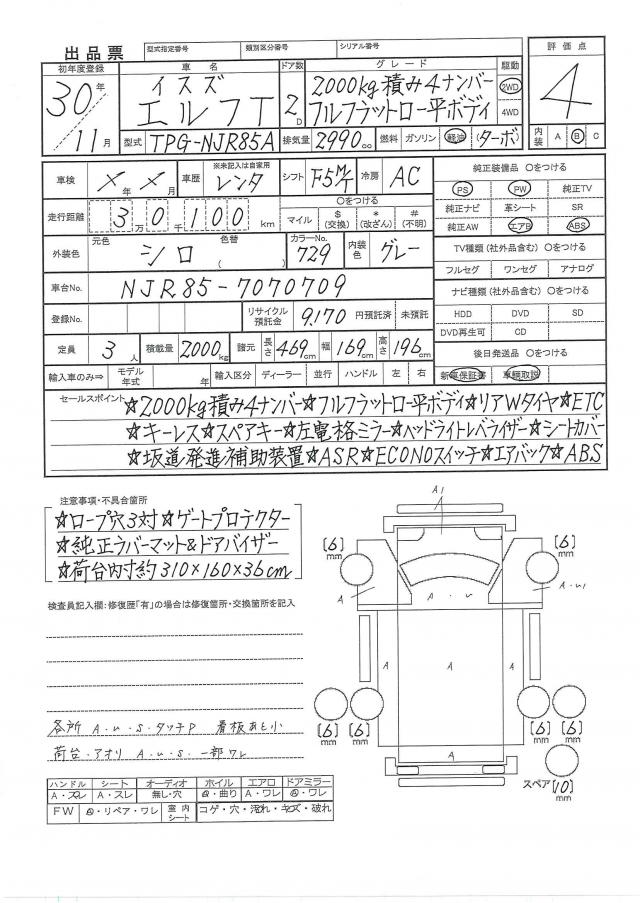 出品票
型式指定番号 類別区分番号 シリアル番号
初年度登録 車名 ドア数 グレード 駆動 評価点
30年 イスズ 2D 2000kg積み4ナンバー 2WD 4
11月 エルフT フルフラットロー平ボディ 4WD
型式 TPG-NJR85A 排気量 2990cc 燃料 ガソリン 軽油 (ターボ) 内装 A B C
車検 ×年×月 車歴 ※未記入は自家用 レンタ シフト F5M/T 冷房 AC 純正装備品 ○をつける
PS PW 純正TV
走行距離 3万0千100km ○をつける マイル $(交換) *(改ざん) #(不明) 純正ナビ 革シート SR
純正AW エアB ABS
外装色 元色 シロ 色替( ) カラーNo. 729 内装色 グレー TV種類(社外品含む) ○をつける
フルセグ ワンセグ アナログ
車台No. NJR85-7070709 ナビ種類(社外品含む) ○をつける
登録No. リサイクル預託金 9,170円預託済 未預託 HDD DVD SD
DVD再生可 CD
定員 3人 積載量 2000kg 諸元 長さ469cm 幅169cm 高さ196cm 後日発送品 ○をつける
輸入車のみ⇒ モデル年式 年 輸入区分 ディーラー 並行 ハンドル 左 右 新車保証書 車輌取説
セールスポイント ☆2000kg積み4ナンバー☆フルフラットロー平ボディ☆リアWタイヤ☆ETC
☆キーレス☆スペアキー☆左電格ミラー☆ヘッドライトレベライザー☆シートカバー
☆坂道発進補助装置☆ASR☆ECONOスイッチ☆エアバック☆ABS
注意事項・不具合箇所
☆ロープ穴3対☆ゲートプロテクター
☆純正ラバーマット&ドアバイザー
☆荷台内寸約310×160×36cm
検査員記入欄:修復歴「有」の場合は修復箇所・交換箇所を記入
各所 A.U.S.タッチP 看板あと小
荷台.アオリ A.U.S.一部ワレ
ハンドル シート オーディオ ホイル エアロ ドアミラー
A・スレ A・スレ 無し・穴 A・曲り A・ワレ A・ワレ
FW A・リペア・ワレ 室内シート コゲ・穴・汚れ・キズ・破れ
A1
[6]mm [6]mm
A A.U A.U1
A A A
[6]mm [6]mm [6]mm [6]mm
A
スペア[10]mm